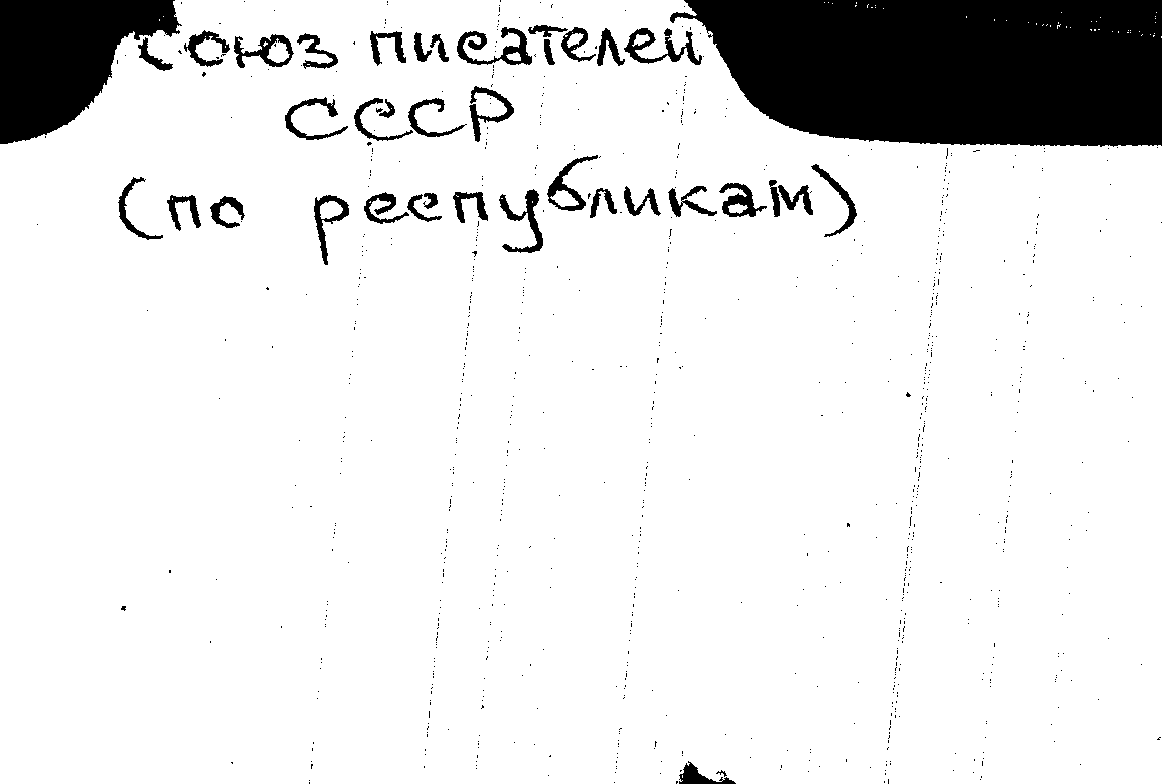 союз писателей
СССР
(по республикам)